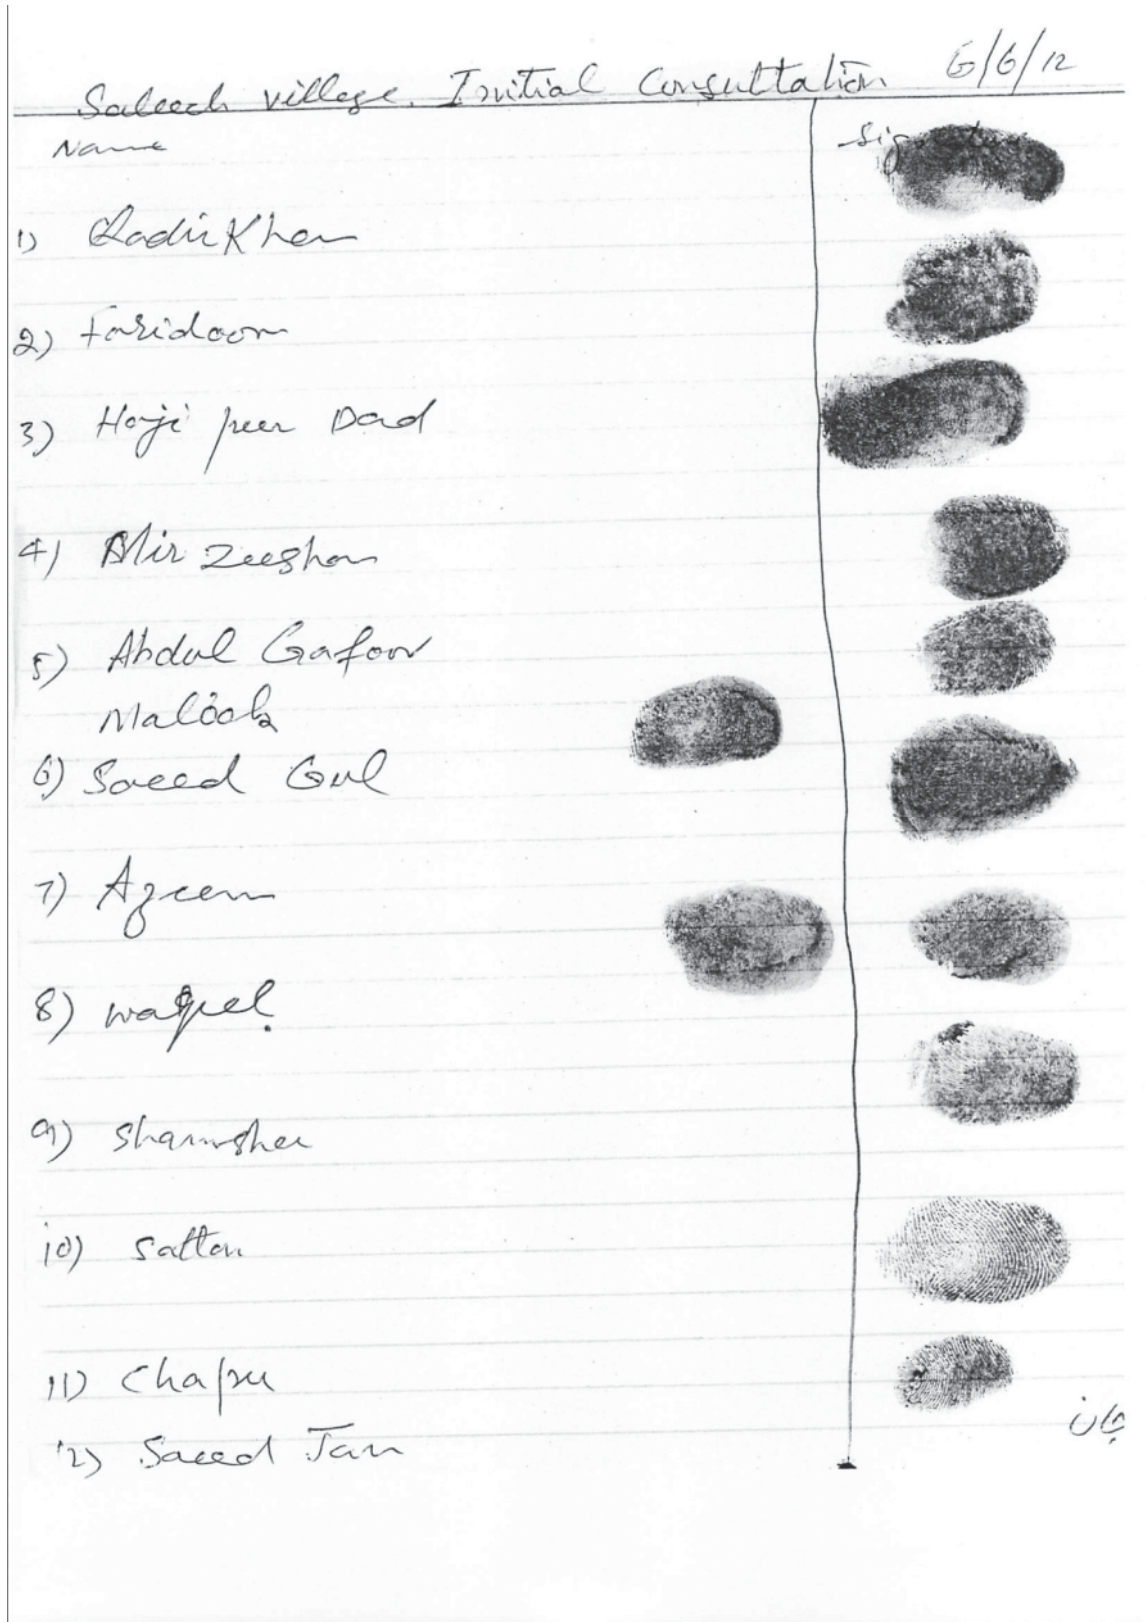 Saleech village. Initial Consultation 6/6/12
Name Signature
1) Qadir Khan
2) Faridoon
3) Haji peer Dad
4) Mir Zeeshan
5) Abdul Gafoor
Malook
6) Saeed Gul
7) Azeem
8)
9) Shamsher
10) Sattar
11)
12) Saeed Jan
جان